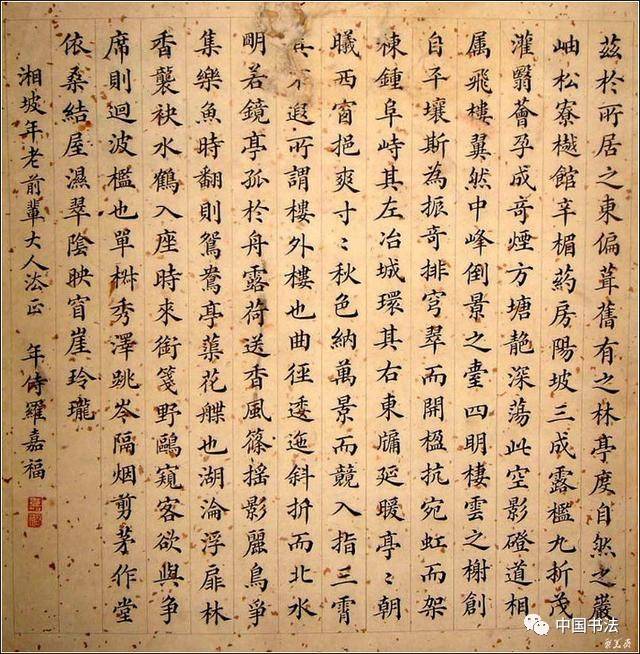 茲於所居之東偏葺舊有之林亭度自然之巖
岫松寮樾館辛楣葯房陽坡三成露檻九折茂
灌翳薈孕成奇煙方塘靘深蕩此空影磴道相
属飛樓翼然中峰倒景之臺四明棲雲之榭創
自平壤斯為振奇排穹翠而開楹抗宛虹而架
棟鍾阜峙其左冶城環其右東牖延暖亭〻朝
曦西窗挹爽寸〻秋色納萬景而競入指三霄
其不遐所謂樓外樓也曲徑逶迤斜折而北水
明若鏡亭孤於舟露荷送香風篠搖影麗鳥爭
集樂魚時翻則鴛鴦亭蕖花艓也湖淪浮扉林
香襲袂水鶴入座時來銜箋野鷗窺客欲與爭
席則迴波檻也單椒秀澤跳岑隔烟剪茅作堂
依桑結屋濕翠陰映窅崖玲瓏
湘坡年老前輩大人法正 年侍羅嘉福
中国书法